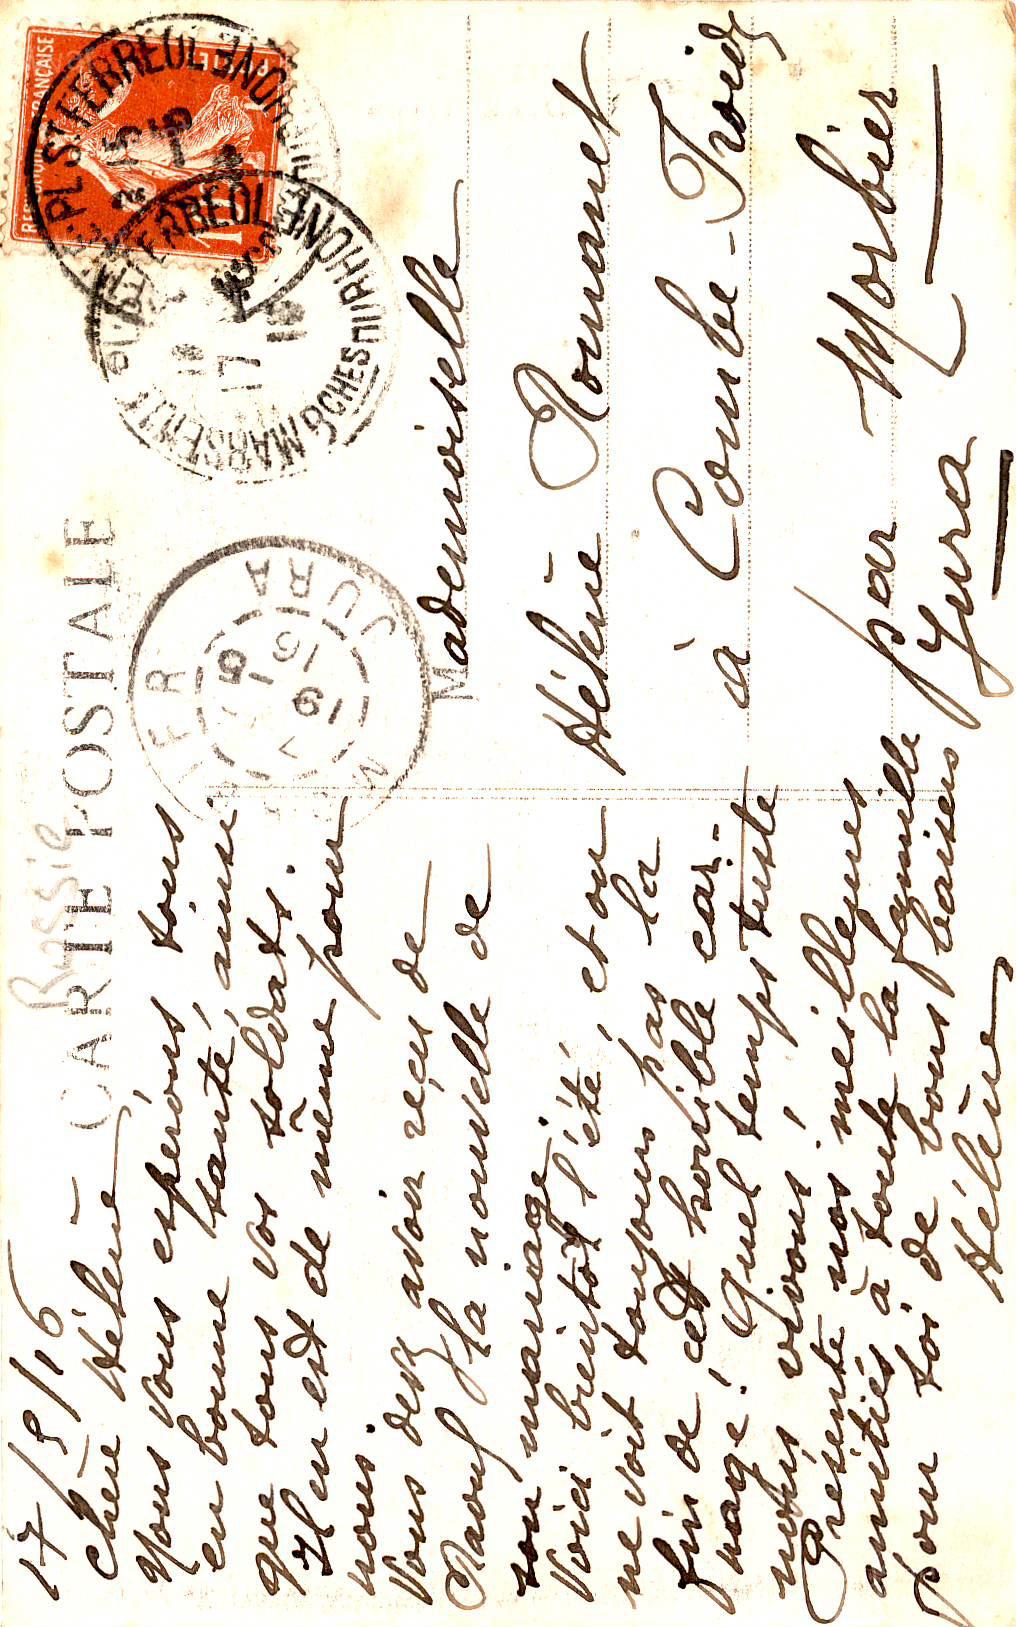 CARTE POSTALE
Russie
17/5/16
Chère Hélène
Nous vous espérons tous
en bonne santé, ainsi
que tous vos soldats.
Il en est de même pour
nous.
Vous devez avoir reçu de
Raoul la nouvelle de
son mariage.
Voici bientôt l'été, et on
ne voit toujours pas la
fin de cet horrible car-
nage! Quel temps triste
nous vivons!
Présente nos meilleures
amitiés à toute la famille
pour toi de bons baisers
Hélène
Mademoiselle
Hélène Romanet
à Combe-Froide
par Morbier
Jura
MARSEILLE PL. ST FERREOL
BCHES DU RHONE
17
JURA
19
5
16